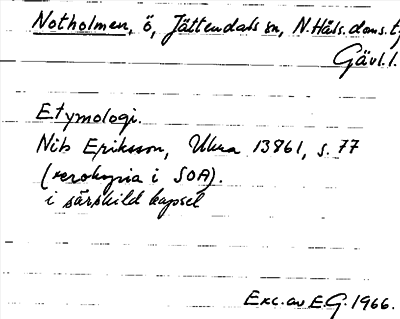 Notholmen, ö, Jättendals sn, N.Häls.doms.t,
Gävl.l.
Etymologi.
Nils Eriksson, Ulma 13861, s. 77
(xerokopia i SOA).
i särskild kapsel
Exc. av E.G. 1966.